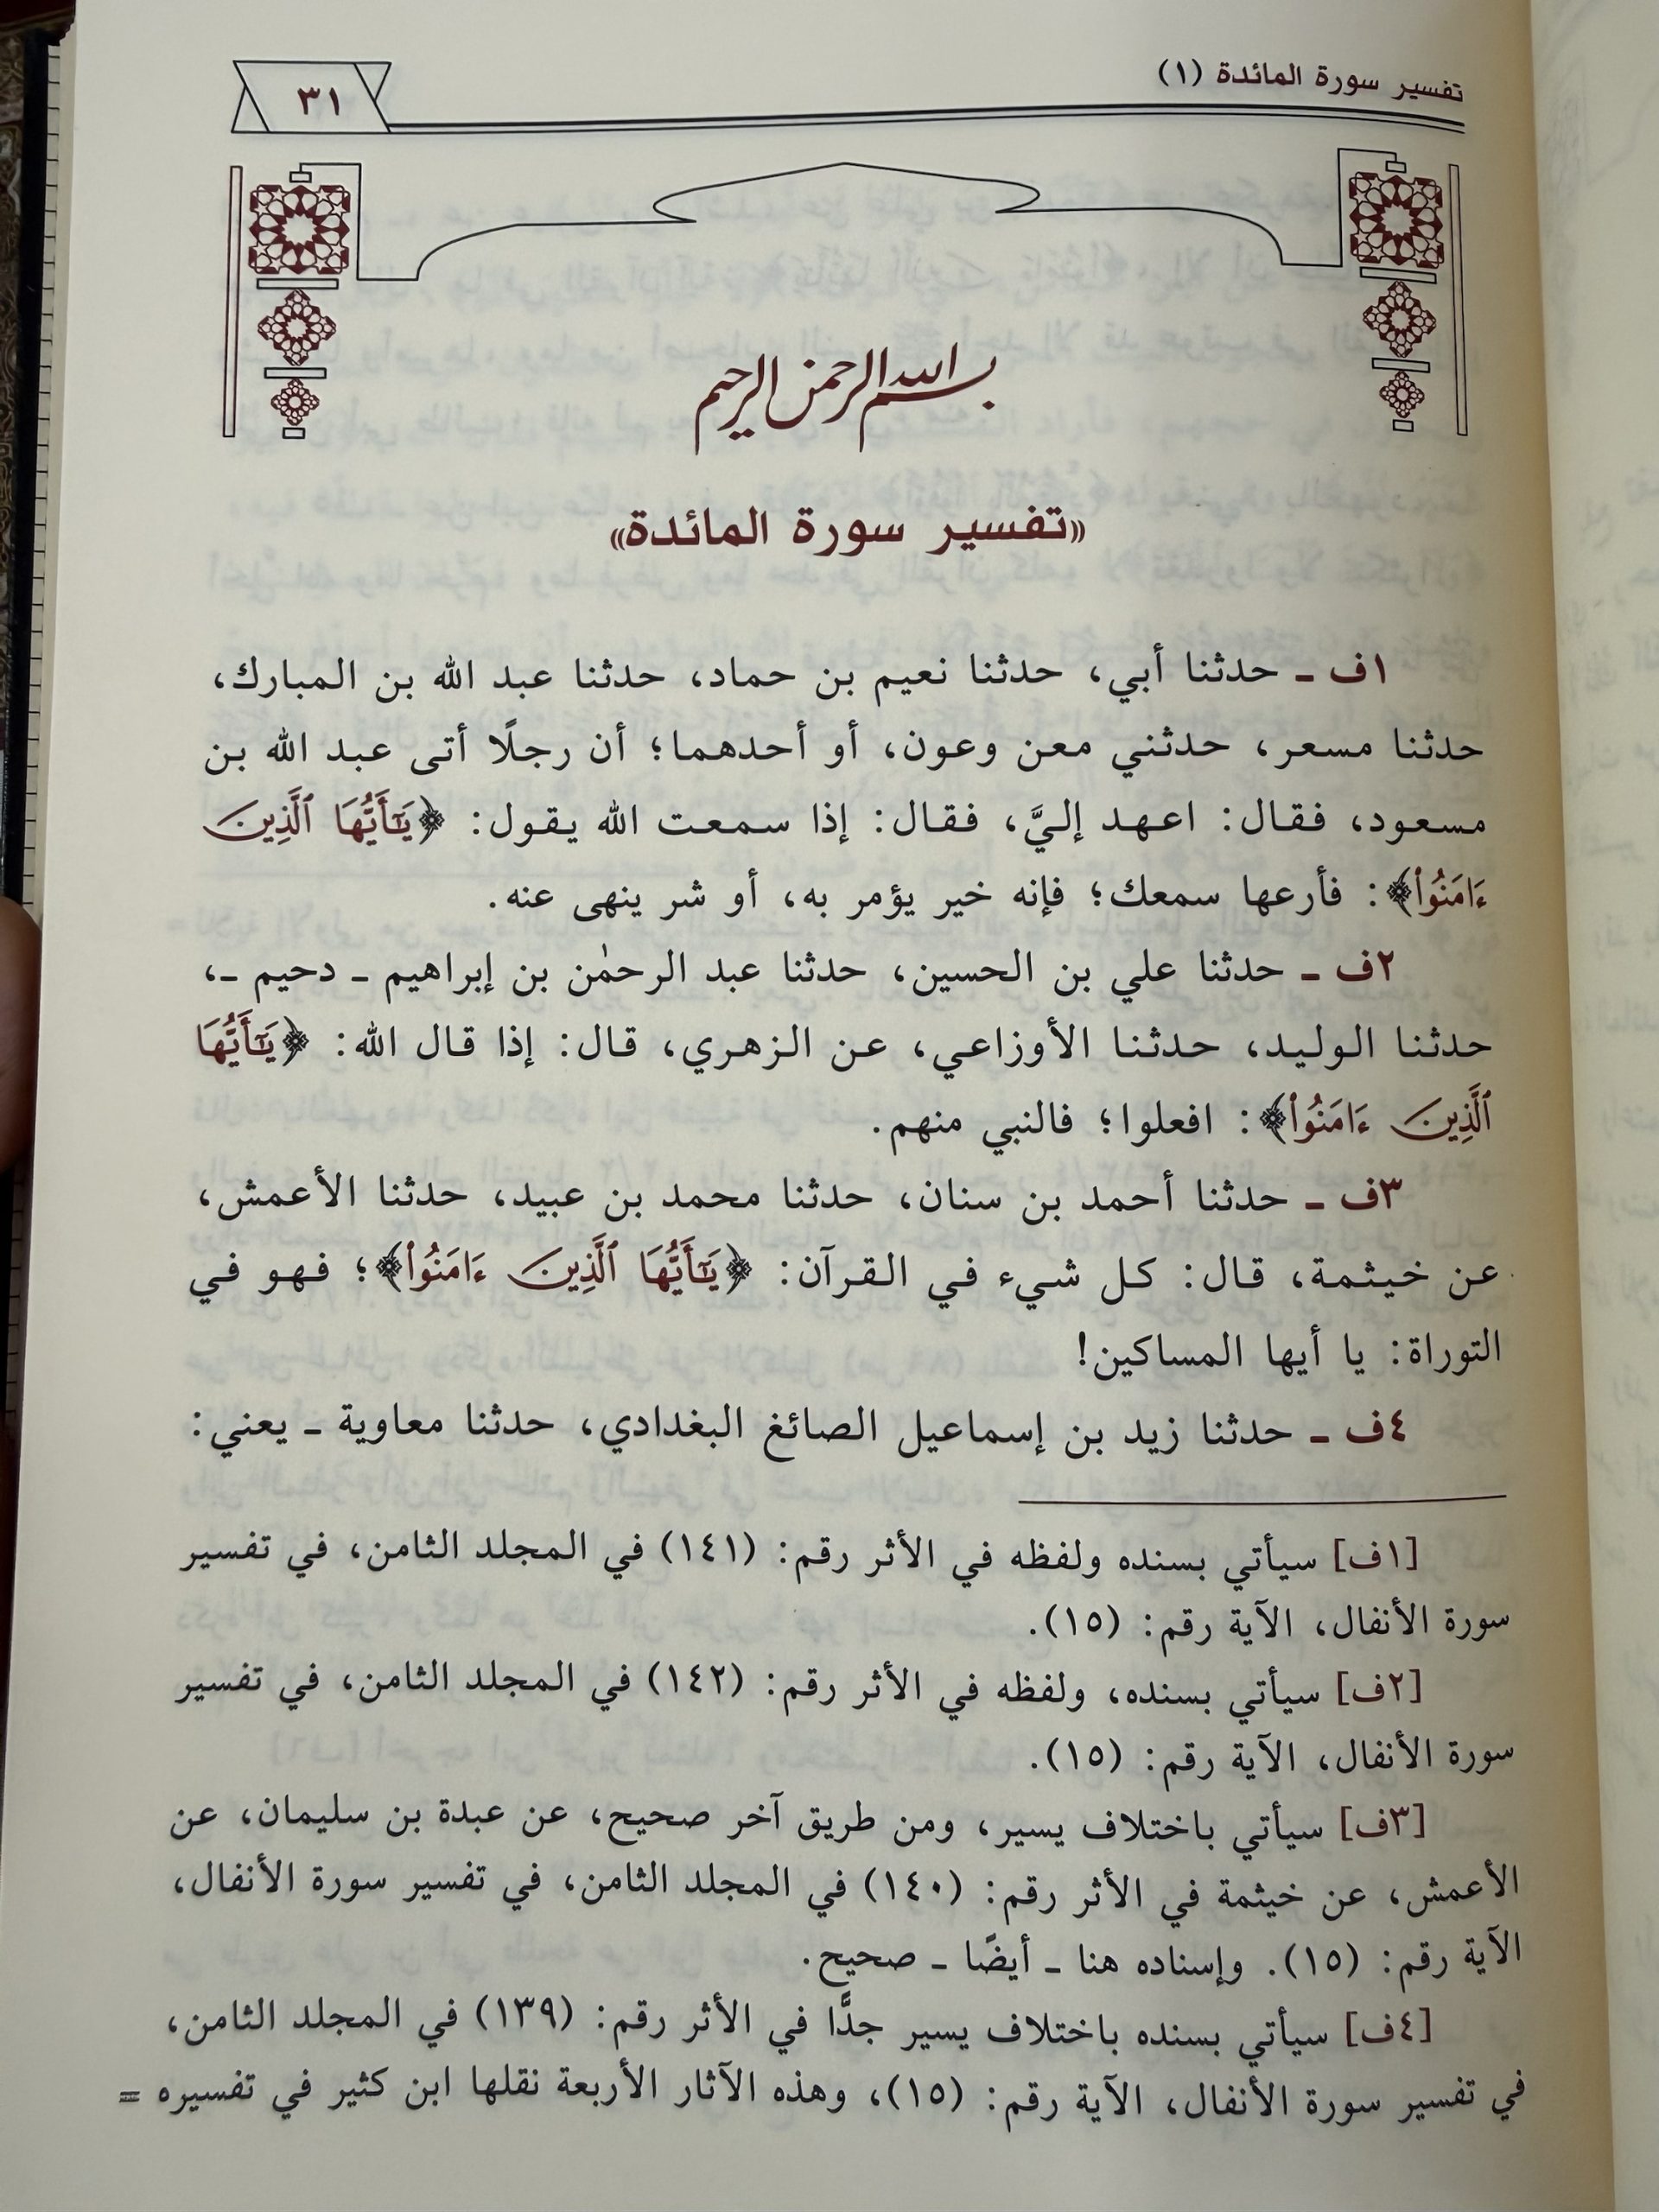 تفسير سورة المائدة (١)
٣١
بسم الله الرحمن الرحيم
«تفسير سورة المائدة»
١ف ـ حدثنا أبي، حدثنا نعيم بن حماد، حدثنا عبد الله بن المبارك،
حدثنا مسعر، حدثني معن وعون، أو أحدهما؛ أن رجلًا أتى عبد الله بن
مسعود، فقال: اعهد إليَّ، فقال: إذا سمعت الله يقول: ﴿يَٰٓأَيُّهَا ٱلَّذِينَ
ءَامَنُوا۟﴾: فأرعها سمعك؛ فإنه خير يؤمر به، أو شر ينهى عنه.
٢ف ـ حدثنا علي بن الحسين، حدثنا عبد الرحمٰن بن إبراهيم ـ دحيم ـ،
حدثنا الوليد، حدثنا الأوزاعي، عن الزهري، قال: إذا قال الله: ﴿يَٰٓأَيُّهَا
ٱلَّذِينَ ءَامَنُوا۟﴾: افعلوا؛ فالنبي منهم.
٣ف ـ حدثنا أحمد بن سنان، حدثنا محمد بن عبيد، حدثنا الأعمش،
عن خيثمة، قال: كل شيء في القرآن: ﴿يَٰٓأَيُّهَا ٱلَّذِينَ ءَامَنُوا۟﴾؛ فهو في
التوراة: يا أيها المساكين!
٤ف ـ حدثنا زيد بن إسماعيل الصائغ البغدادي، حدثنا معاوية ـ يعني:
[١ف] سيأتي بسنده ولفظه في الأثر رقم: (١٤١) في المجلد الثامن، في تفسير
سورة الأنفال، الآية رقم: (١٥).
[٢ف] سيأتي بسنده، ولفظه في الأثر رقم: (١٤٢) في المجلد الثامن، في تفسير
سورة الأنفال، الآية رقم: (١٥).
[٣ف] سيأتي باختلاف يسير، ومن طريق آخر صحيح، عن عبدة بن سليمان، عن
الأعمش، عن خيثمة في الأثر رقم: (١٤٠) في المجلد الثامن، في تفسير سورة الأنفال،
الآية رقم: (١٥). وإسناده هنا ـ أيضًا ـ صحيح.
[٤ف] سيأتي بسنده باختلاف يسير جدًّا في الأثر رقم: (١٣٩) في المجلد الثامن،
في تفسير سورة الأنفال، الآية رقم: (١٥)، وهذه الآثار الأربعة نقلها ابن كثير في تفسيره =